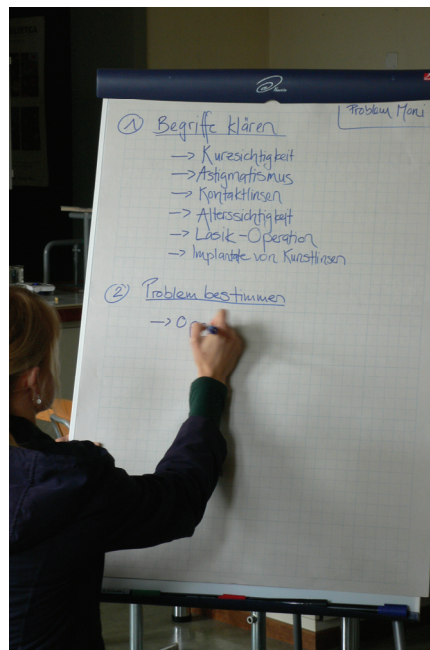 Problem Moni
① Begriffe klären
→ Kurzsichtigkeit
→ Astigmatismus
→ Kontaktlinsen
→ Alterssichtigkeit
→ Lasik-Operation
→ Implantate von Kunstlinsen
② Problem bestimmen
→ O